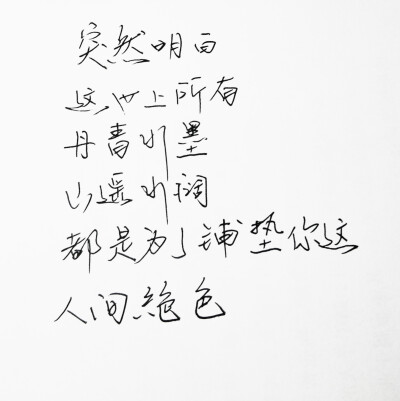 突然明白
这世上所有
丹青水墨
山遥水阔
都是为了铺垫你这
人间绝色